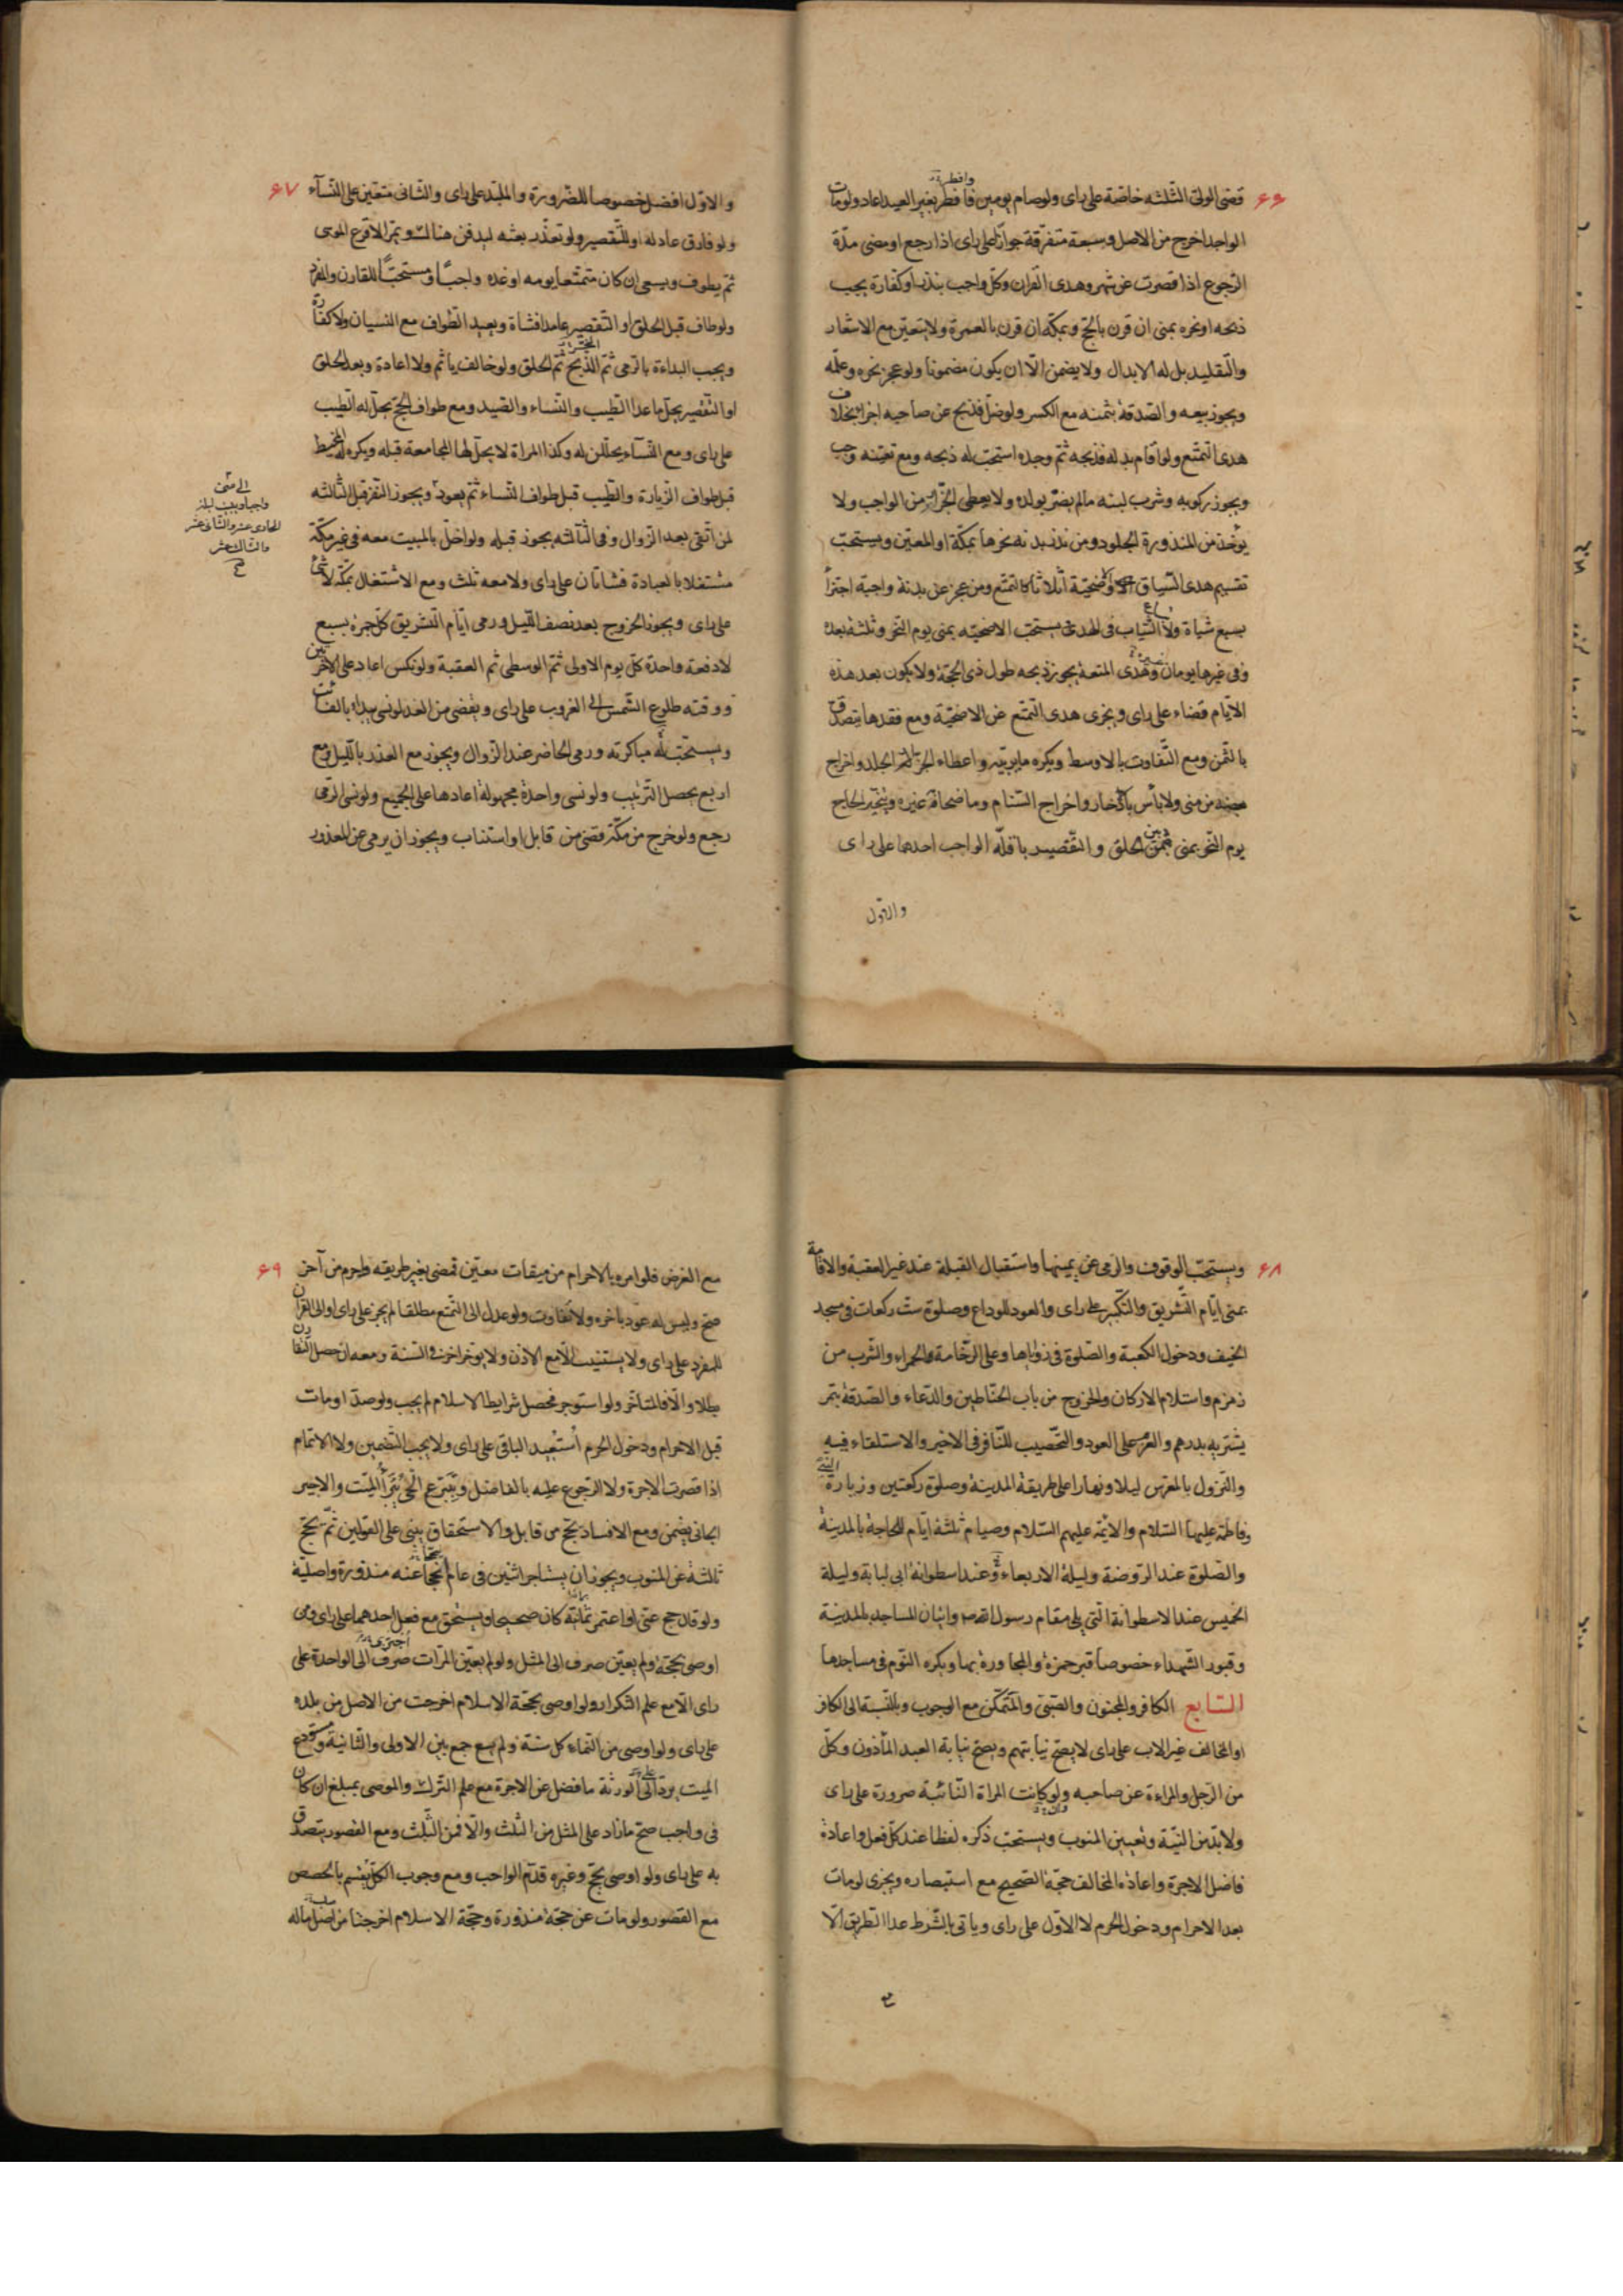 ۶۶
وافطر
قضی الولی الثلثه خاصة علی رای ولو صام یومین فافطر بغیر العید اعاد ولو مات
الواجد اخرج من الاصل وسبعة متفرقة جوازا علی رای اذا رجع او مضی مدّة
الرّجوع اذا قصرت عن شهر وهدی القران وکلّ واجب بنذر او کفارة یجب
ذبحه او نحره بمنی ان قرن بالحجّ وبمکّة ان قرن بالعمرة ولا یتعیّن مع الاشعار
والتقلید بل له الابدال ولا یضمن الّا ان یکون مضمونا ولو عجز نحره وعلّمه
ویجوز بیعه والصدقة بثمنه مع الکسر ولو ضلّ فذبح عن صاحبه اجزأ بخلاف
هدی التمتّع ولو اقام بدله فذبحه ثمّ وجده استحبّ له ذبحه ومع تعیّنه وجب
ویجوز رکوبه وشرب لبنه مالم یضرّ بولده ولا یعطی الجزّار من الواجب ولا
یؤخذ من المنذورة الجلود ومن نذر بدنة نحرها بمکّة او المعیّن ویستحبّ
تقسیم هدی السیاق والاضحیّة اثلاثا کالتمتّع ومن عجز عن بدنة واجبة اجتزأ
بسبع شیاة ولا الشیاب فی الهدی یستحبّ الاضحیّه بمنی یوم النحر وثلثة بعده
وفی غیرها یومان وهدی المتعة یجوز ذبحه طول ذی الحجّة ولا یکون بعد هذه
الایّام قضاء علی رای ویجزی هدی التمتّع عن الاضحیّة ومع فقدها یتصدّق
بالثّمن ومع التّفاوت بالاوسط ویکره ما یربّیه واعطاء الجزّار الجلد واخراج
من منی ولا بأس بادّخار واخراج السّنام وما ضحّاه غیره ویتخیّر الحاجّ
یوم النّحر بمنی بین الحلق والتّقصیر باقلّه الواجب احدهما علی رای
والاوّل
۶۷
والاوّل افضل خصوصا للصّرورة والملبّد علی رای والثّانی متعیّن علی النّسآء
ولو فارق عاد له او للتّقصیر ولو تعذّر بعثه لیدفن هناک ویمرّ الاقرع الموسی
ثمّ یطوف ویسعی ان کان متمتّعا یومه او غده واجبا ومستحبّا للقارن والمفرد
ولو طاف قبل الحلق او التّقصیر عامدا فشاة ویعید الطّواف مع النسیان ولا کفّارة
ویجب البداءة بالرّمی ثمّ الذّبح ثمّ الحلق ولو خالف یأثم ولا اعادة وبعد الحلق
او التّقصیر یحلّ ما عدا الطّیب والنّساء والصّید ومع طواف الحجّ یحلّ له الطّیب
علی رای ومع النّسآء یحللن له وکذا المراة لا یحلّ لها المجامعة قبله ویکره له المخیط
قبل طواف الزّیارة والطّیب قبل طواف النّساء ثمّ یعود ویجوز النّفر قبل الثّالثه
لمن اتّقی بعد الزّوال وفی الثّالثه یجوز قبله ولو اخلّ بالمبیت معه فی غیر مکّة
مشتغلا بالعبادة فشاتان علی رای ولا معه ثلث ومع الاشتغال بمکّة لا شیء
علی رای ویجوز الخروج بعد نصف اللّیل ورمی ایّام التّشریق کلّ جمرة بسبع
لا دفعة واحدة کلّ یوم الاولی ثمّ الوسطی ثم العقبة ولو نکس اعاد علی الاخرتین
ووقته طلوع الشّمس الی الغروب علی رای ویقضی من الغد لو نسی یبدأ بالفائت
ویستحبّ له مباکرته ورمی الحاضر عند الزّوال ویجوز مع العذر باللّیل ومع
اربع یحصل التّرتیب ولو نسی واحدة مجهولة اعادها علی الجمیع ولو نسی الرّمی
رجع ولو خرج من مکّة قضی من قابل او استناب ویجوز ان یرمی عن المعذور
الی منی
واجبا ویبیت لیلة
الحادی عشر والثّانی عشر
والثالث عشر
۶۸
ویستحبّ الوقوف والرّمی عن یمینها واستقبال القبلة عند غیر العقبة والاقامة
بمنی ایّام التّشریق والتّکبیر علی رای والعود للوداع وصلوة ستّ رکعات فی مسجد
الخیف ودخول الکعبة والصّلوة فی زوایاها وعلی الرّخامة الحمراء والشّرب من
زمزم واستلام الارکان والخروج من باب الحنّاطین والدّعاء والصّدقة بتمر
یشتریه بدرهم والعزم علی العود والتّحصیب للنّافر فی الاخیر والاستلقاء فیه
والنّزول بالمعرّس لیلا ونهارا علی طریقة المدینة وصلوة رکعتین وزیارة النّبیّ
وفاطمة علیها السّلام والائمّة علیهم السّلام وصیام ثلثة ایّام للحاجة بالمدینة
والصّلوة عند الرّوضة ولیلة الاربعاء وعند اسطوانة ابی لبابة ولیلة
الخمیس عند الاسطوانة الّتی یلی مقام رسول الله ص واتیان المساجد بالمدینة
وقبور الشّهداء خصوصا قبر حمزة والمجاورة بها ویکره النّوم فی مساجدها
السّابع الکافر والمجنون والصّبیّ والمتمکّن مع الوجوب وبالنّسبة الی الکافر
او المخالف غیر الاب علی رای لا یصحّ نیابتهم ویصحّ نیابة العبد المأذون وکلّ
من الرّجل والمراة عن صاحبه ولو کانت المراة النّائبة صرورة علی رای
ولا بدّ من النیّة وتعیین المنوب ویستحبّ ذکره لفظا عند کلّ فعل واعادة
فاضل الاجرة واعادة المخالف حجّة الصّحیح مع استبصاره ویجزی لو مات
بعد الاحرام ودخول الحرم لا الاوّل علی رای ویاتی بالشّرط عدا الطّریق الّا
۶۹
مع الغرض فلو امره بالاحرام من میقات معیّن فمضی بغیر طریقه واحرم من آخر
صحّ ولیس له عود باخره ولا تفاوت ولو عدل الی التّمتّع مطلقا لم یجز علی رای او الی القران
للمفرد علی رای ولا یستنیب الّا مع الاذن ولا یوخر اخری فی السّنة ومعه ان حصل التّقارن
بطلا والّا فالمتاخّر ولو استوجر فحصل شرایط الاسلام لم یجب ولو صدّ او مات
قبل الاحرام ودخول الحرم اُستعید الباقی علی رای ولا یجب التّضمین ولا الاتمام
اذا قصرت الاجرة ولا الرّجوع علیه بالفاضل وبتبرّع الحیّ یبرأ المیّت والاجیر
الجانی یضمن ومع الافساد یحجّ من قابل والاستحقاق یبنی علی القولین ثمّ یحجّ
ثالثة عن المنوب ویجوز ان یستاجر اثنین فی عام لحجّا عنه منذورة واصلیّة
ولو قال حجّ عنّی او اعتمر بمائة کان صحیحا ویستحقّ مع فعل احدهما علی رای ومن
اوصی بحجّة ولم یعیّن صرف الی المثل ولو لم یعیّن المرّات صرف الی الواحدة علی
رای الّا مع علم التّکرار ولو اوصی بحجّة الاسلام اخرجت من الاصل من بلده
علی رای ولو اوصی من النّماء کلّ سنة ولم یسع جمع بین الاولی والثّانیة ومستودع
المیت یردّ الی الورثة ما فضل عن الاجرة مع علم التّرک والموصی بمبلغ ان کان
فی واجب صحّ ما زاد علی المثل من الثّلث والّا فمن الثّلث ومع القصور یتصدّق
به علی رای ولو اوصی بحجّ وغیره قدّم الواجب ومع وجوب الکلّ یقسم بالحصص
مع القصور ولو مات عن حجّة منذورة وحجّة الاسلام اخرجتا من اصل ماله